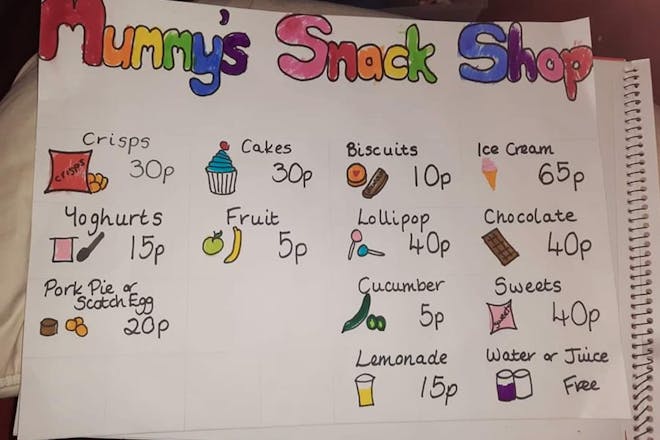 Mummy's Snack Shop
Crisps
crisps
30p
Cakes
30p
Biscuits
10p
Ice Cream
65p
Yoghurts
15p
Fruit
5p
Lollipop
40p
Chocolate
40p
Pork Pie or
Scotch Egg
20p
Cucumber
5p
Sweets
sweets
40p
Lemonade
15p
Water or Juice
Free